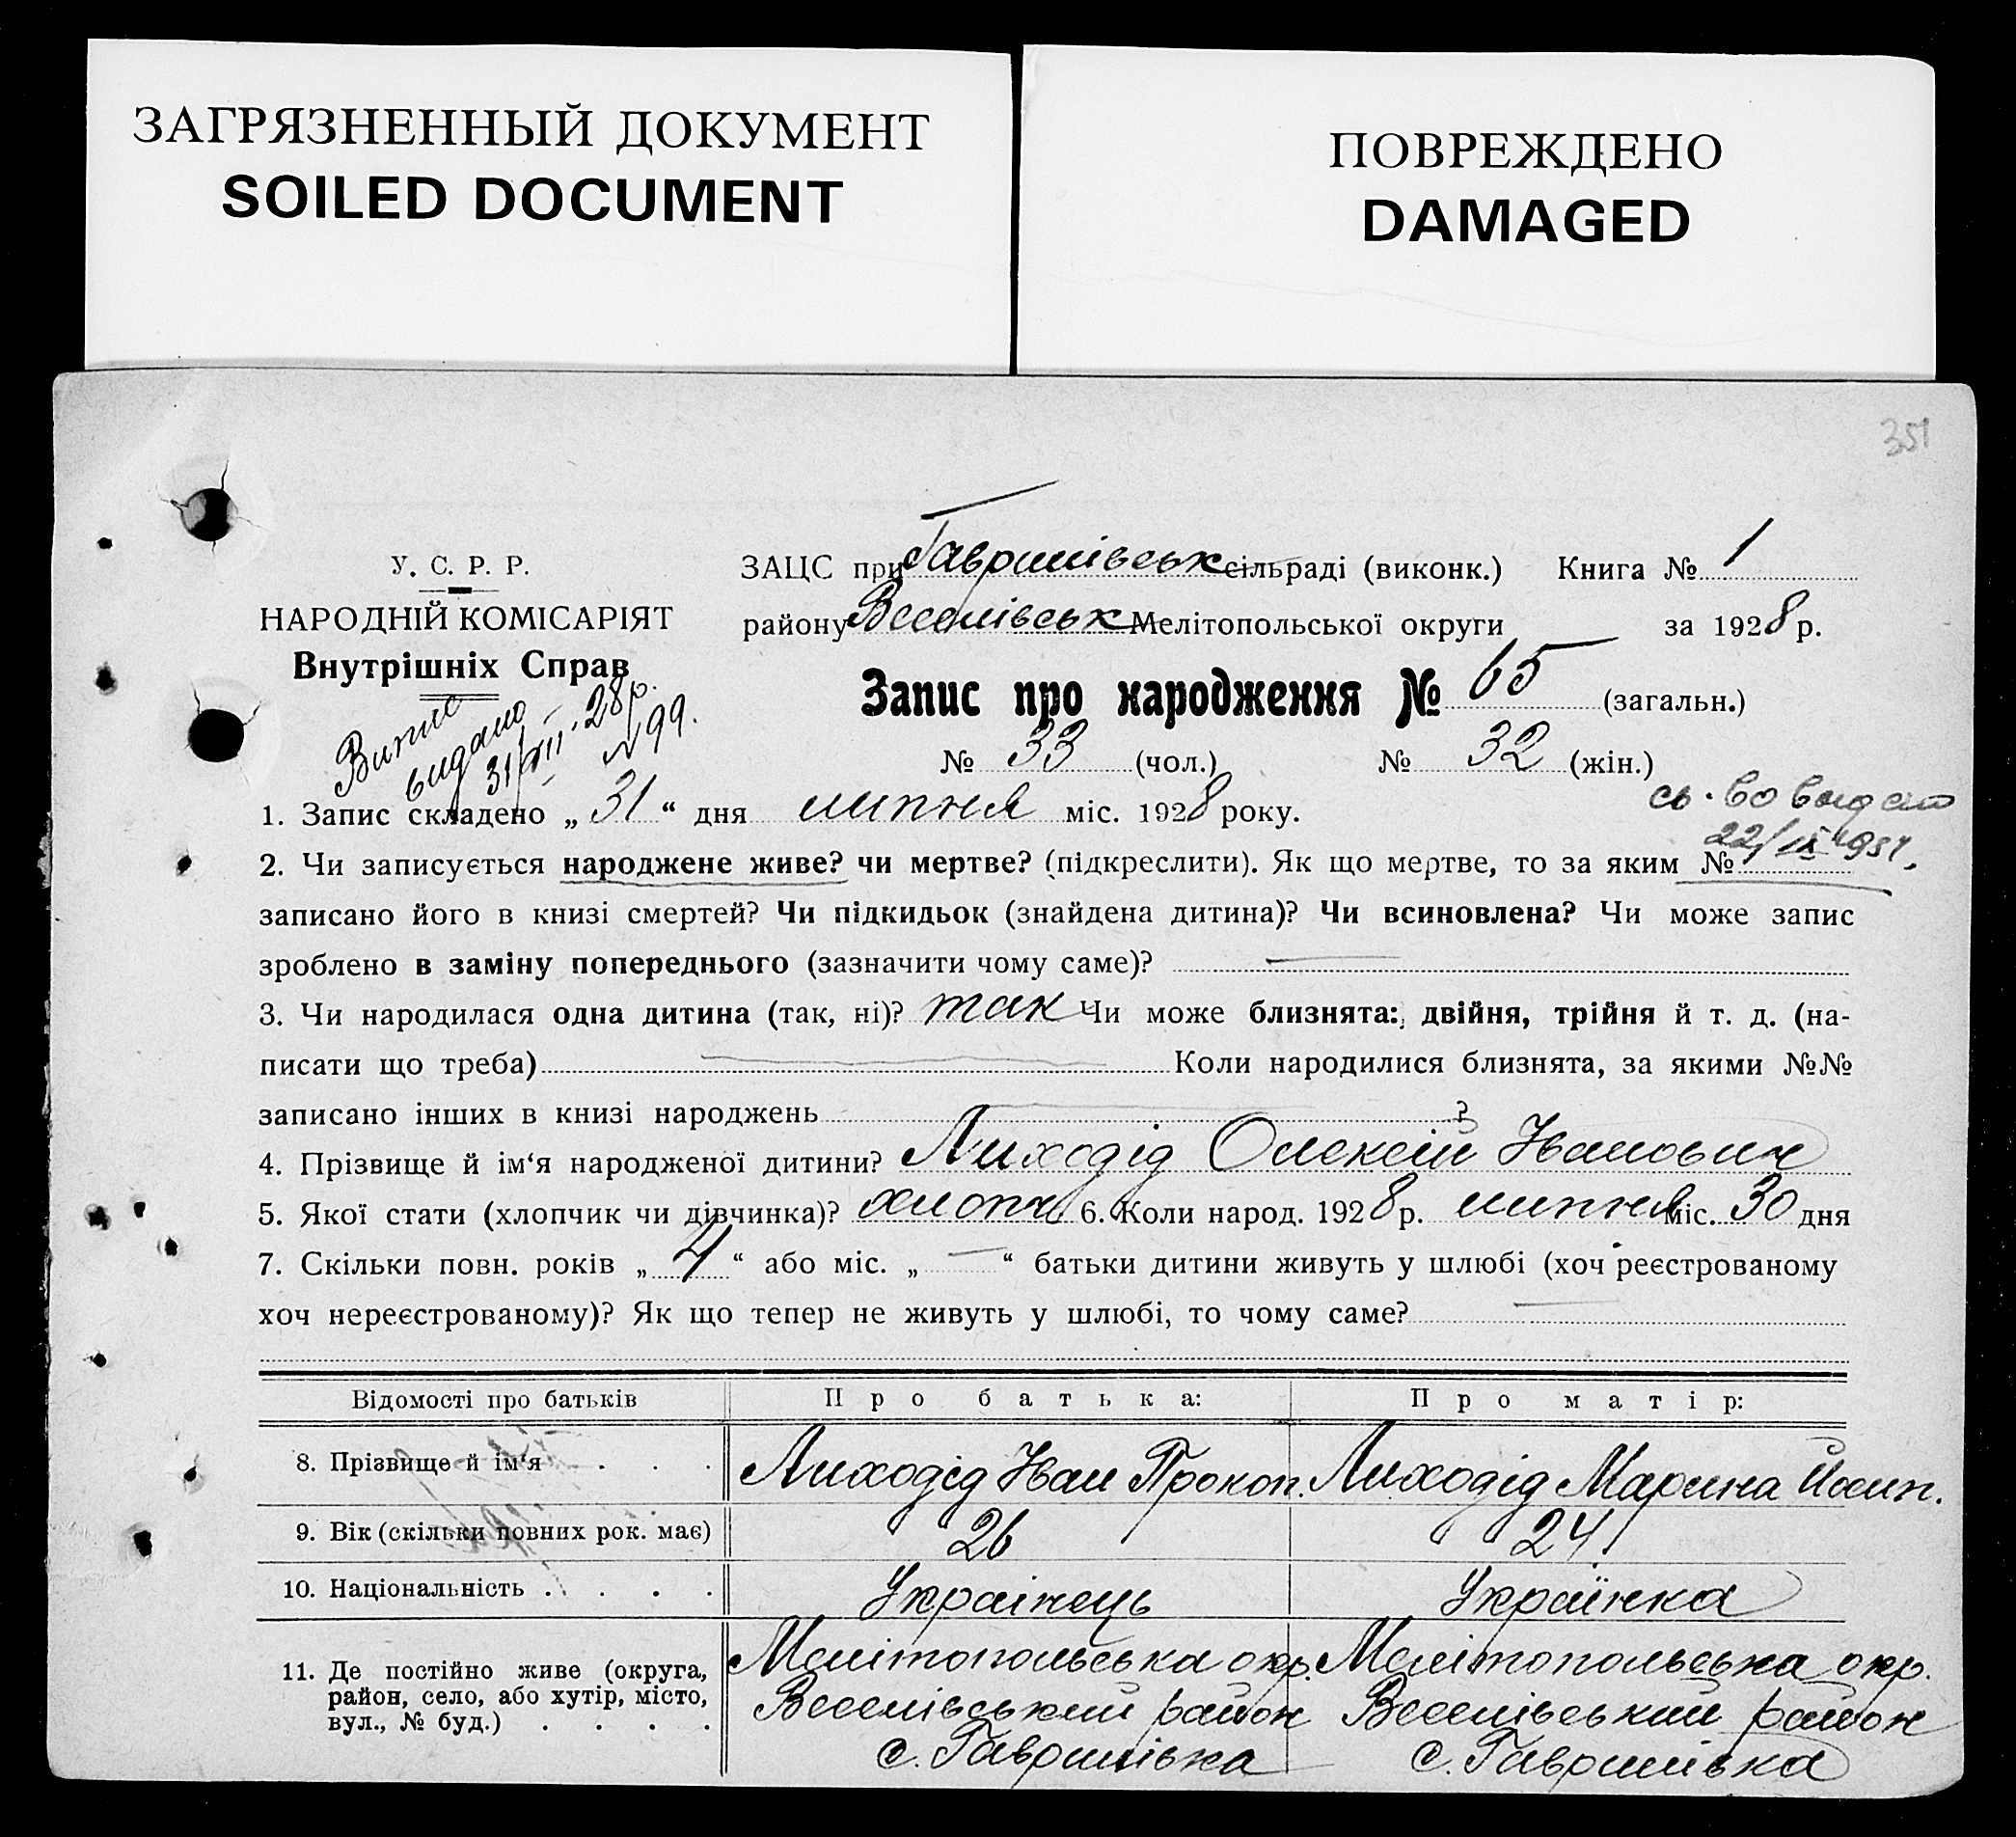 ЗАГРЯЗНЕННЫЙ ДОКУМЕНТ
SOILED DOCUMENT
ПОВРЕЖДЕНО
DAMAGED
351
У. С. Р. Р.
НАРОДНІЙ КОМІСАРІЯТ
Внутрішніх Справ
видано
31/VII.28р.
N99.
ЗАЦС при Гавришівськ сільраді (виконк.) Книга № 1
району Веселівськ Мелітопольської округи за 1928 р.
Запис про народження № 65 (загальн.)
№ 33 (чол.) № 32 (жін.)
св-во выдано
22/IX 1951.
1. Запис складено „31“ дня липня міс. 1928 року.
2. Чи записується народжене живе? чи мертве? (підкреслити). Як що мертве, то за яким №
записано його в книзі смертей? Чи підкидьок (знайдена дитина)? Чи всиновлена? Чи може запис
зроблено в заміну попереднього (зазначити чому саме)? —
3. Чи народилася одна дитина (так, ні)? так Чи може близнята: двійня, трійня й т. д. (на-
писати що треба) Коли народилися близнята, за якими №№
записано інших в книзі народжень ?
4. Прізвище й ім‘я народженої дитини? Лиходід Олексій Іванович
5. Якої стати (хлопчик чи дівчинка)? хлопч. 6. Коли народ. 1928 р. липня міс. 30 дня
7. Скільки повн. років „4“ або міс. „—“ батьки дитини живуть у шлюбі (хоч реєстрованому
хоч нереєстрованому)? Як що тепер не живуть у шлюбі, то чому саме? —
Відомості про батьків Про батька: Про матір:
8. Прізвище й ім‘я . . . Лиходід Іван Прокоп. Лиходід Марина Йосип.
9. Вік (скільки повних рок. має) 26 24
10. Національність . . . . Українець Українка
11. Де постійно живе (округа, Мелітопольська окр. Мелітопольська окр.
район, село, або хутір, місто, Веселівський район Веселівський район
вул., № буд.) . . . . с. Гавришівка с. Гавришівка